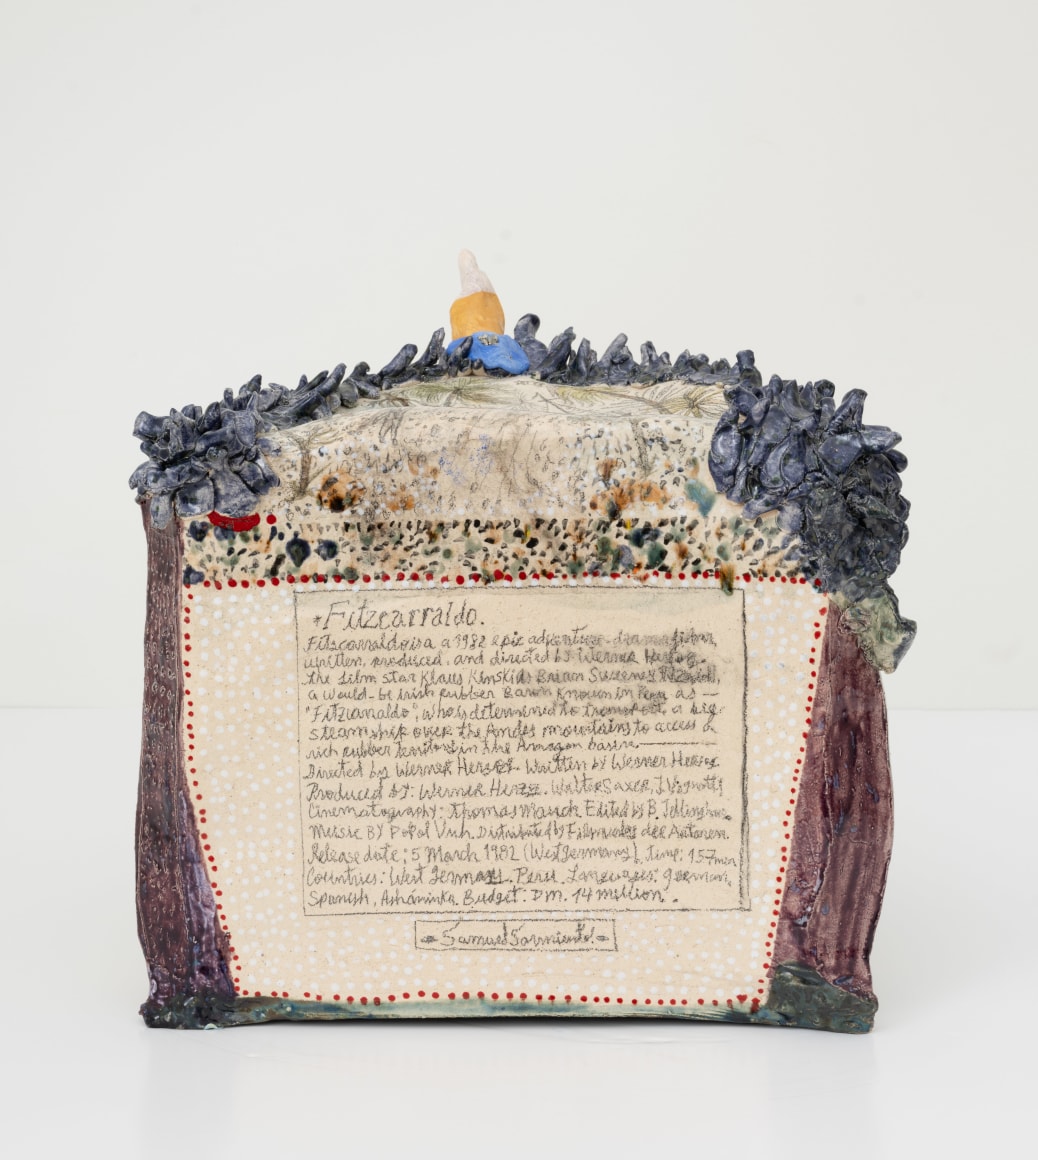 *Fitzcarraldo.
Fitzcarraldo is a 1982 epic adventure-drama film
written, produced, and directed by Werner Herzog.
the film star Klaus Kinski as Brian Sweeney
a would-be irish rubber Baron known in Peru as —
"Fitzcarraldo", who is determined to transport, a big
steamship over the Andes mountains to access a
rich rubber territory in the Amazon basin.
Directed by Werner Herzog. Written by Werner Herzog
Produced by: Werner Herzog. Walter Saxer, J. Vignatti
Cinematography: Thomas Mauch. Edited by B.
Music By Popol Vuh. Distributed by Filmverlag der Autoren.
Release date: 5 March 1982 (West Germany), time: 157 min
Countries: West Germany. Peru. Languages: german,
Spanish, Ashaninka. Budget: DM. 14 million.
Samuel Sarmiento.